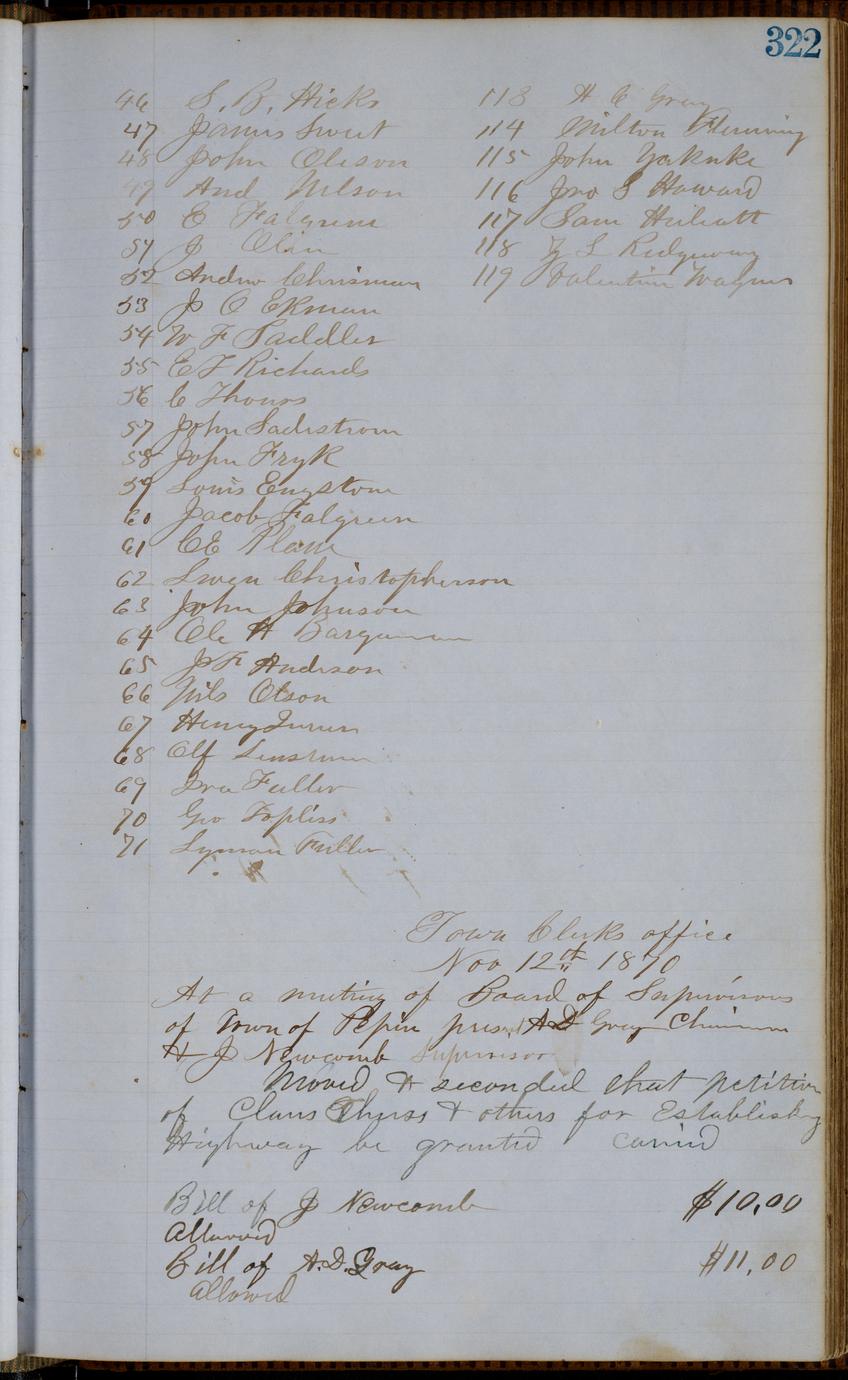 322
46 S. B. Hicks
47 James Sweet
48 John Oleson
49 And Nilson
50 E Falgrene
51 J Olin
52 Andrew Chrisman
53 J O Ekman
54 W F Saddler
55 E F Richards
56 C Thouss
57 John Sadestrom
58 John Fryk
59 Louis Engstom
60 Jacob Falgreen
61 C E Plam
62 Swen Christopherson
63 John Johnson
64 Ole H
65 J F Anderson
66 Nils Olson
67 Henry
68 Olf
69 Ira Fuller
70 Geo Topliss
71 Lyman Fuller
113 H C Gray
114 Milton Flemming
115 John Yaknke
116 Jno S Howard
117 Sam Hulcatt
118 L Ridgeway
119 Valentine Wagner
Town Clerks office
Nov 12th 1870
At a meeting of Board of Supervisors
of Town of Pepin present A D Gray Chairman
H J Newcomb Supervisor
Moved & seconded that petition
of Claus Thuss & others for Establishing
Highway be granted carried
Bill of J Newcomb $10,00
Allowed
Bill of A. D. Gray $11,00
Allowed